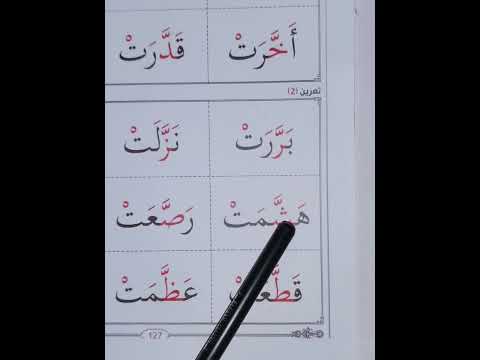 أَخَّرَتْ قَدَّرَتْ
تمرين (2)
بَرَّرَتْ نَزَّلَتْ
هَشَّمَتْ رَصَّعَتْ
قَطَّعَتْ عَظَّمَتْ
127